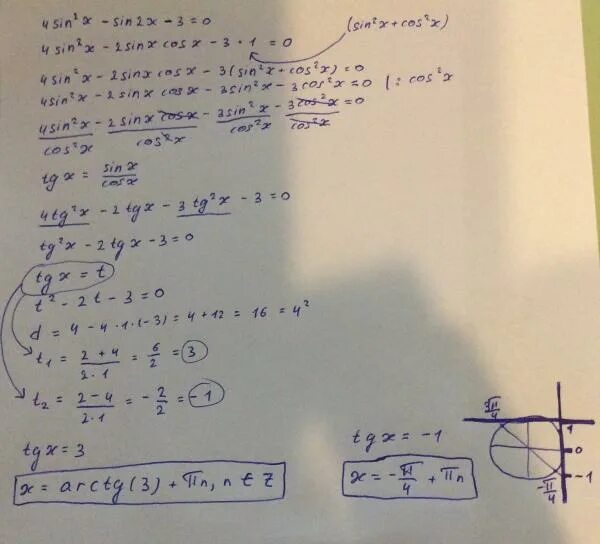 4sin²x - sin2x - 3 = 0
(sin²x + cos²x)
4sin²x - 2sinx cosx - 3 · 1 = 0
4sin²x - 2sinx cosx - 3(sin²x + cos²x) = 0
4sin²x - 2sinx cosx - 3sin²x - 3cos²x = 0 | : cos²x
4sin²x/cos²x - 2sinx cosx/cos²x - 3sin²x/cos²x - 3cos²x/cos²x = 0
tgx = sinx/cosx
4tg²x - 2tgx - 3tg²x - 3 = 0
tg²x - 2tgx - 3 = 0
tgx = t
t² - 2t - 3 = 0
d = 4 - 4 · 1 · (-3) = 4 + 12 = 16 = 4²
t₁ = (2 + 4)/(2 · 1) = 6/2 = 3
t₂ = (2 - 4)/(2 · 1) = -2/2 = -1
tgx = 3
x = arctg(3) + πn, n ∈ Z
tgx = -1
x = -π/4 + πn
3π/4
1
0
-1
-π/4